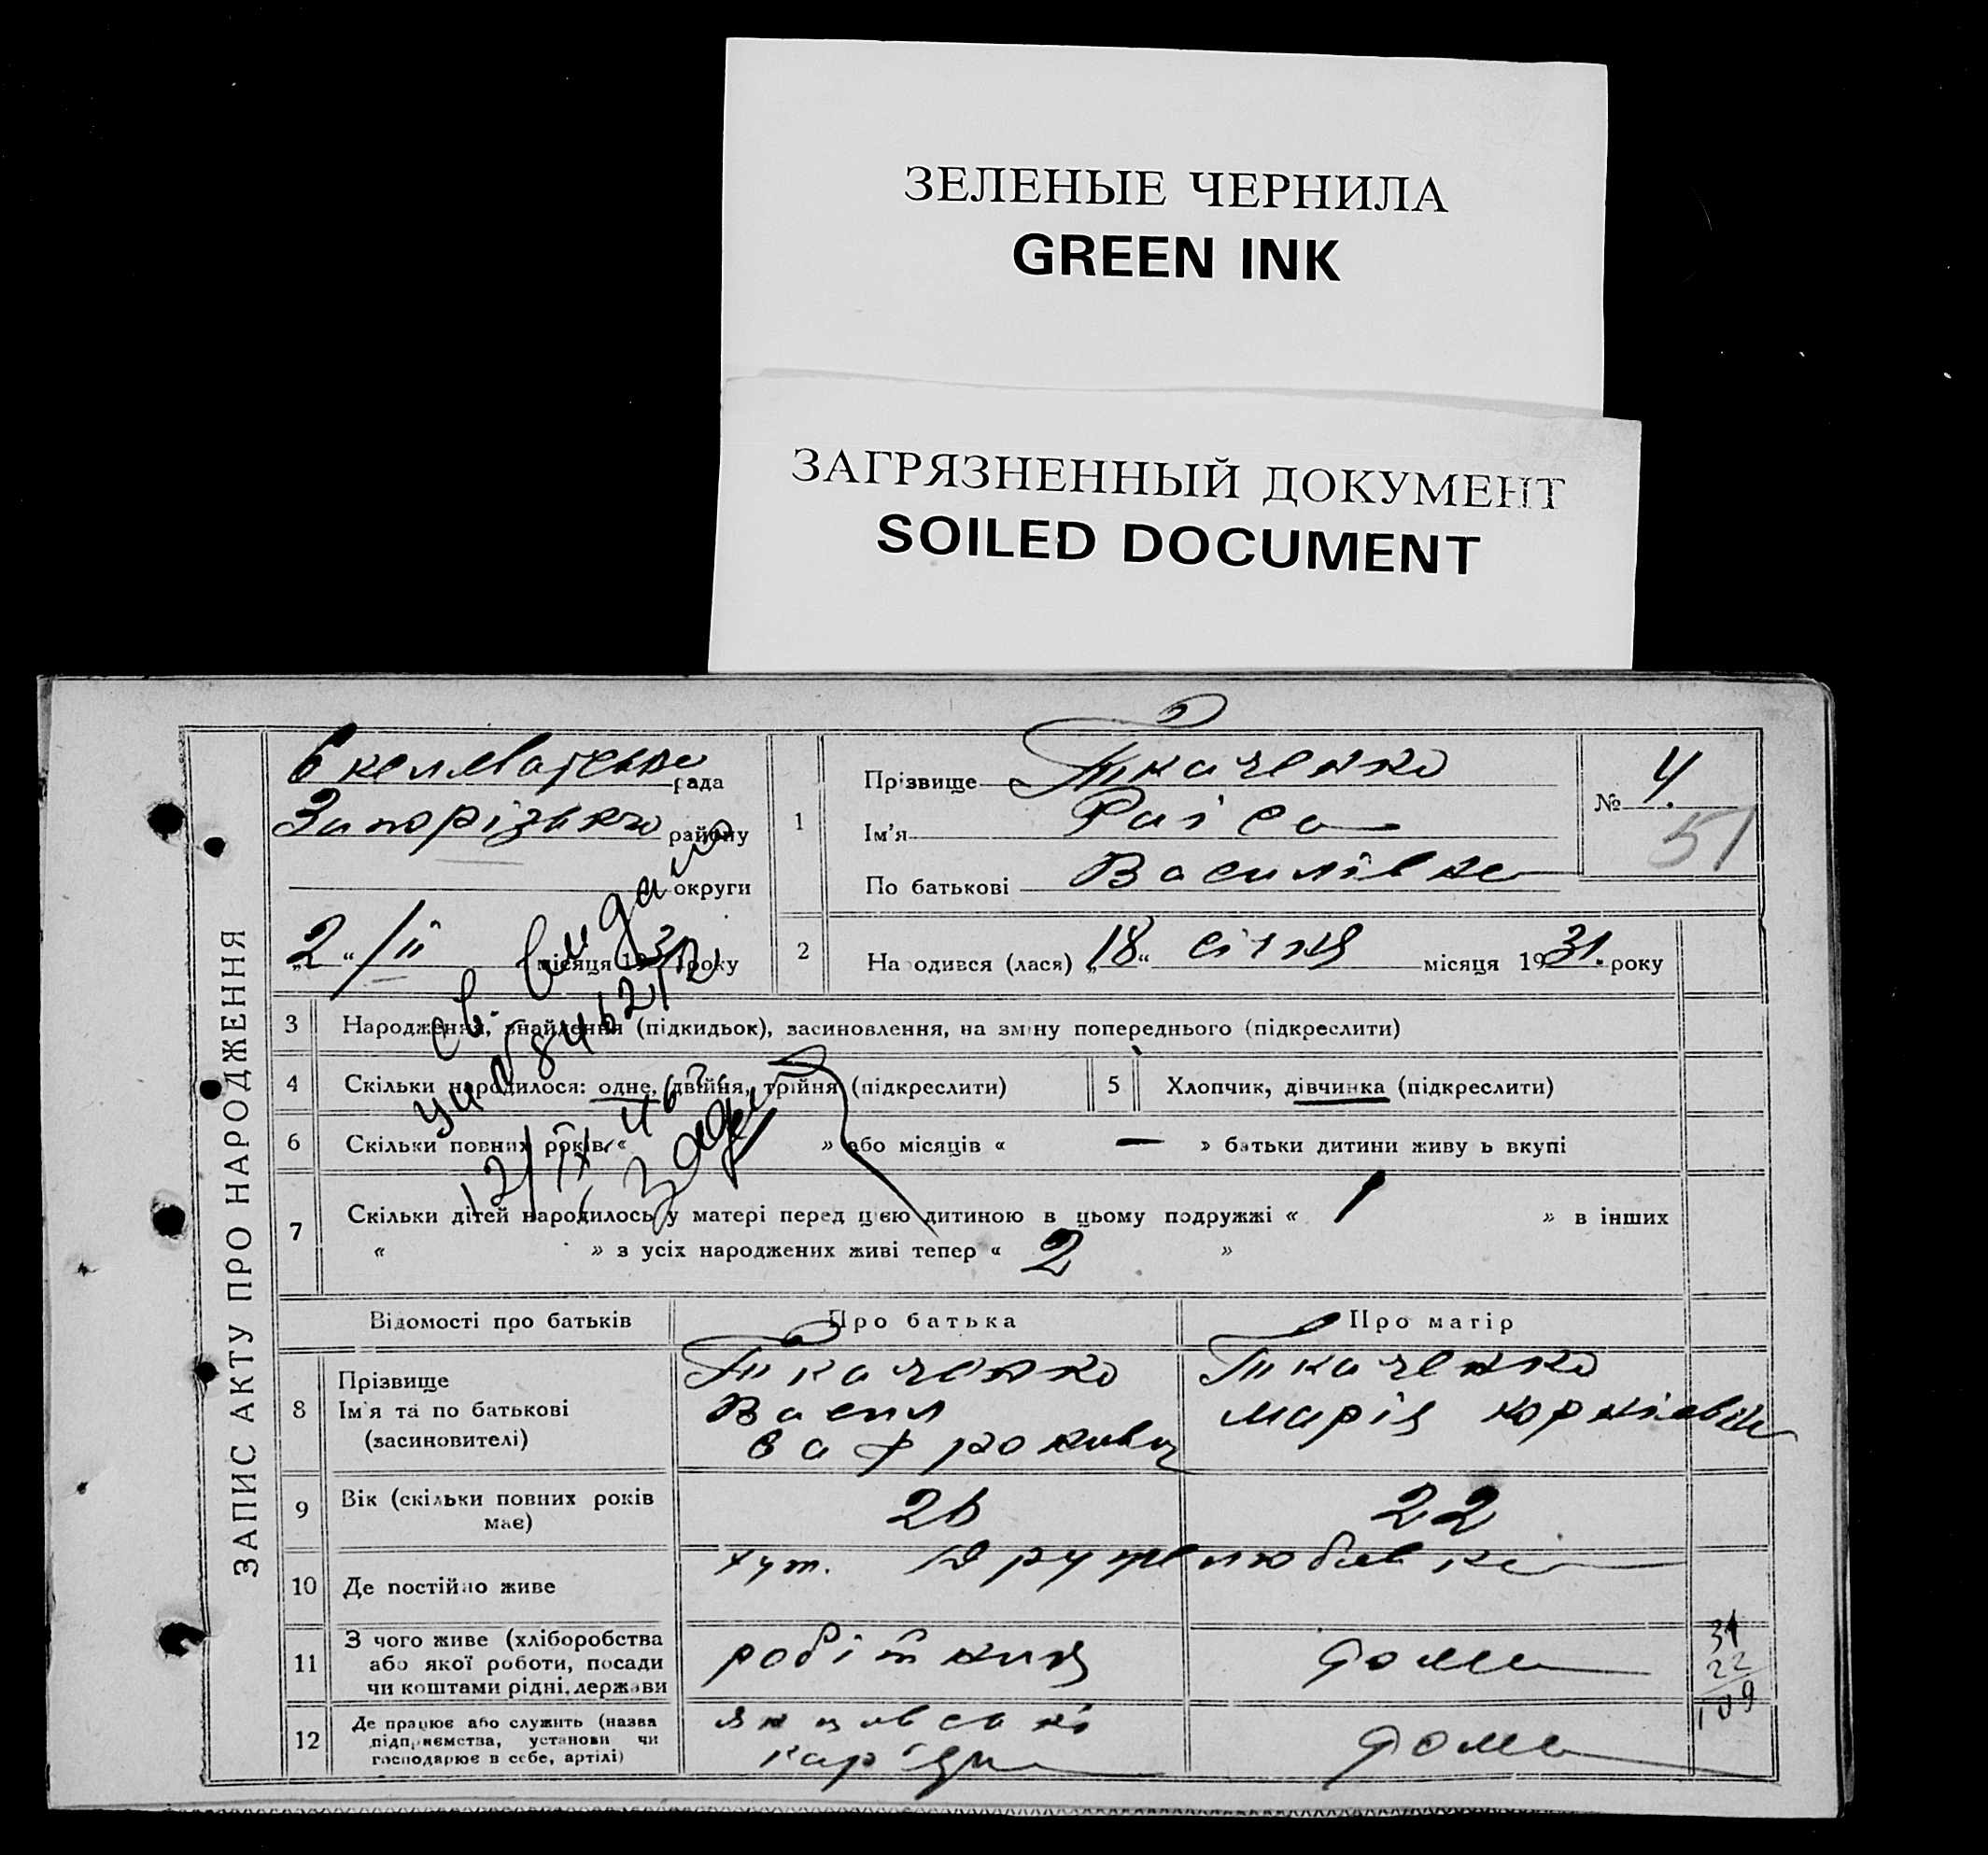 ЗЕЛЕНЫЕ ЧЕРНИЛА
GREEN INK
ЗАГРЯЗНЕННЫЙ ДОКУМЕНТ
SOILED DOCUMENT
ЗАПИС АКТУ ПРО НАРОДЖЕННЯ
рада
Запорізького району
округи
„2“ /ІІ місяця 1931 року
1
Прізвище Ткаченко
Ім'я Раіса
По батькові Василівна
№ 4.
51
2 Народився (лася) „18“ січня місяця 1931. року
св. видано
12/ІХ 46
3 Народження, знайдення (підкидьок), засиновлення, на зміну попереднього (підкреслити)
4 Скільки народилося: одне, двійня, трійня (підкреслити)
5 Хлопчик, дівчинка (підкреслити)
6 Скільки повних років « » або місяців « — » батьки дитини живуть вкупі
7 Скільки дітей народилось у матері перед цією дитиною в цьому подружжі « 1 » в інших
« » з усіх народжених живі тепер « 2 »
Відомості про батьків
Про батька
Про матір
8 Прізвище
Ім'я та по батькові
(засиновителі)
Ткаченко
Васил
Ткаченко
Марія
9 Вік (скільки повних років має)
26
22
10 Де постійно живе
хут. Дружелюбівка
11 З чого живе (хліборобства
або якої роботи, посади
чи коштами рідні, держави
робітник
дома
31
22
109
12 Де працює або служить (назва
підприємства, установи чи
господарює в себе, артілі)
янцівські
кар'єри
дома